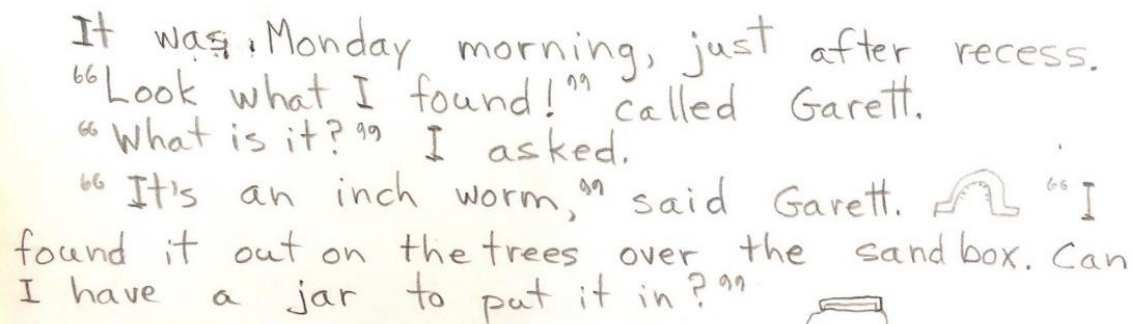 It was Monday morning, just after recess.
"Look what I found!" called Garett.
"What is it?" I asked.
"It's an inch worm," said Garett. "I
found it out on the trees over the sand box. Can
I have a jar to put it in?"